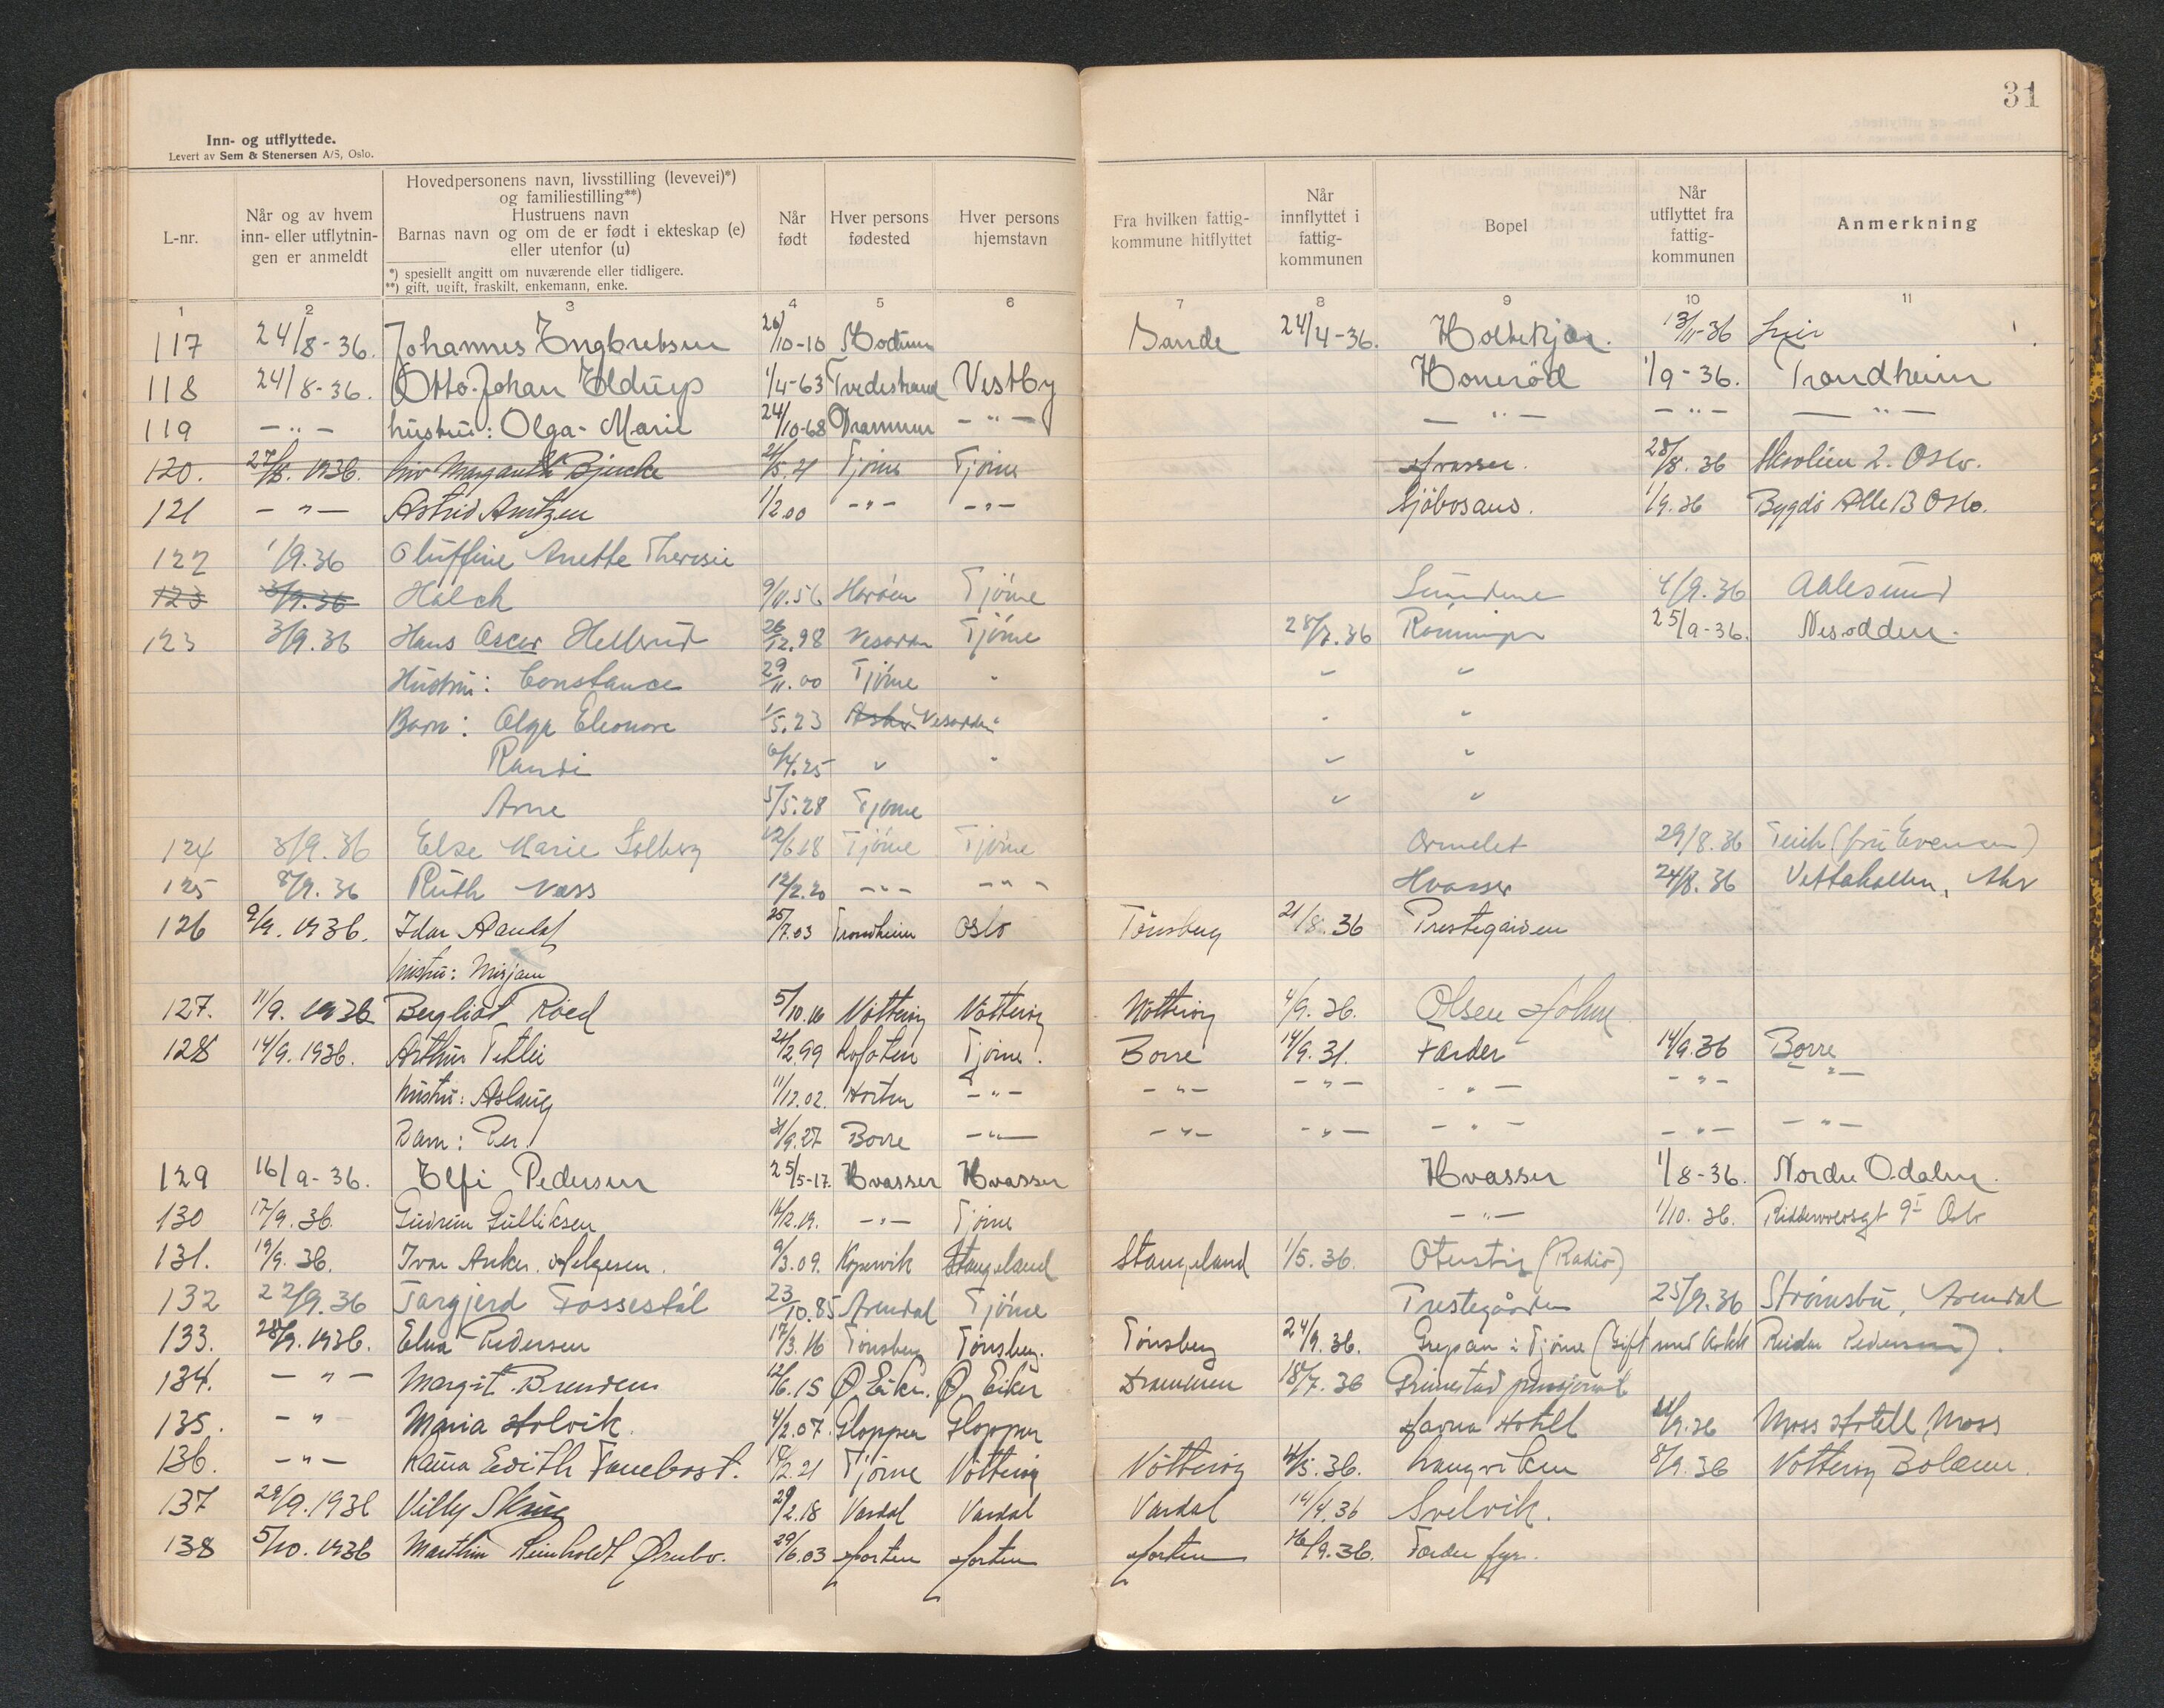 31
Inn- og utflyttede.
Levert av Sem & Stenersen A/S, Oslo.
L-nr.
Når og av hvem inn- eller utflytnin-gen er anmeldt
Hovedpersonens navn, livsstilling (levevei)*) og familiestilling**) Hustruens navn Barnas navn og om de er født i ekteskap (e) eller utenfor (u)
*) spesiellt angitt om nuværende eller tidligere.
**) gift, ugift, fraskilt, enkemann, enke.
Når født
Hver persons fødested
Hver persons hjemstavn
Fra hvilken fattig-kommune hitflyttet
Når innflyttet i fattig-kommunen
Bopel
Når utflyttet fra fattig-kommunen
Anmerkning
1 2 3 4 5 6 7 8 9 10 11
117 24/8-36. Johannes Engbretsen 26/10-10 Modum Sande 24/4-36. Holtekjær. 13/11-36 Lier
118 24/8-36. Otto Johan Eldrup 1/4-63 Tvedestrand Vestby Honerød 1/9-36. Trondheim
119 - " - hustru: Olga-Marie 24/10-68 Drammen - " - - " - - " - - " -
120. 27/8. 1936. Liv Margareth Bjercke 21/5.21 Tjøme Tjøme Hvasser. 28/8. 36 2. Oslo.
121 - " - Astrid Arntzen 1/2 00 - " - - " - Sjöbosaus. 1/9.36 Bygdö Alle 13 Oslo.
122 1/9.36 Oluffine Anette Theresie
123 3/9.36 Holch 9/11.56 Tjöme Sundene 4/9.36 Aalesund
123 3/9.36 Hans Oscar Hellerud 26/12.98 Tjöme 28/7.36 25/9-36. Nesodden.
Hustru: Constance 29/11.00 Tjöme " " "
Barn: Olga Eleonore 1/5.23 " " "
Randi 6/4.25 " " " "
Arne 5/5.28 Tjöme " "
124 3/9.36 Else Marie Solberg 12/6.18 Tjöme Tjöme Ormelet 29/8.36 (fru Evensen)
125 8/9.36 Ruth Næss 12/2.20 - " - - " - Hvasser 24/8.36 Vettakollen,
126 9/9. 1936. 25/7.03 Trondheim Oslo Tönsberg 21/8.36 Prestegården
hustru: Mirjam
127. 11/9. 1936 Bergliot Röed 5/10.16 Nötteröy Nötteröy Nötteröy 4/9.36. Olsen Holme
128 14/9. 1936. Arthur Tetlie 24/2.99 Lofoten Tjöme. Borre 14/9.31. Færder 14/9.36 Borre
hustru: Aslaug 11/12.02. Horten - " - - " - - " - - " - - " - - " -
Barn: Per. 31/9.27 Borre - " - - " - - " - - " - - " - - " -
129 16/9-36. Elfi Pedersen 25/5-17. Hvasser Hvasser Hvasser 1/8-36. Nordre Odalen.
130 17/9.36. Gudrun Gulliksen 16/12.19. - " - Tjöme - " - 1/10.36. Oslo
131. 19/9.36. Ivar Anker Helgesen. 9/3.09. Kopervik Stangeland Stangeland 1/5.36. (Radio)
132 22/9.36 Torgjerd Fossestøl 23/10.85 Arendal Tjöme Prestegården 25/9.36 Strömsbu, Arendal
133. 28/9. 1936. Elna Pedersen 17/3.16 Tönsberg Tönsberg. Tönsberg 24/9.36. Grepan i Tjöme (Gift med Reidar Pedersen).
134. - " - Margit Brenden 12/6.15 Ø. Eiker. Ø. Eiker Drammen 18/7.36 Grimestad pensjonat
135. - " Maria Holvik. 4/2.07. Gloppen Gloppen Havna Hotell 21/9.36 Moss Hotell, Moss
136. - " - Edith Fanebost. 18/2.21 Tjöme Nötteröy Nötteröy 4/5.36. Langviken 8/9.36 Nötteröy Bolærne.
137 29/9.1936 Villy 29/2.18 Vardal Vardal Vardal 14/4.36 Svelvik.
138 5/10. 1936 Marthin Reinholdt Ørebo. 29/6.03 Horten Horten Horten 16/9.36. Færder fyr.